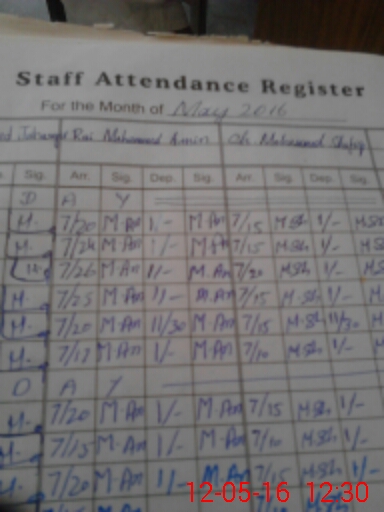 Staff Attendance Register
For the Month of May 2016
Rai Mohammad Amin Ch Mohammad Shafiq
Sig. Arr. Sig. Dep. Sig. Arr. Sig. Dep. Sig.
D A Y
M. 7/20 M.An 1/- M.An 7/15 M.Sh 1/- M.Sh
M. 7/24 M.An 1/- M.An 7/15 M.Sh 1/- M.Sh
M. 7/26 M.An 1/- M.An 7/20 M.Sh 1/- M.Sh
M. 7/25 M.An 1/- M.An 7/15 M.Sh 1/- M.Sh
M. 7/20 M.An 11/30 M.An 7/15 M.Sh 11/30 M.Sh
M. 7/17 M.An 1/- M.An 7/10 M.Sh 1/-
D A Y
M. 7/20 M.An 1/- M.An 7/15 M.Sh 1/-
M. 7/15 M.An 1/- M.An 7/10 M.Sh 1/-
M. 7/20 M.An 1/- M.An 7/15 M.Sh 1/-
12-05-16 12:30